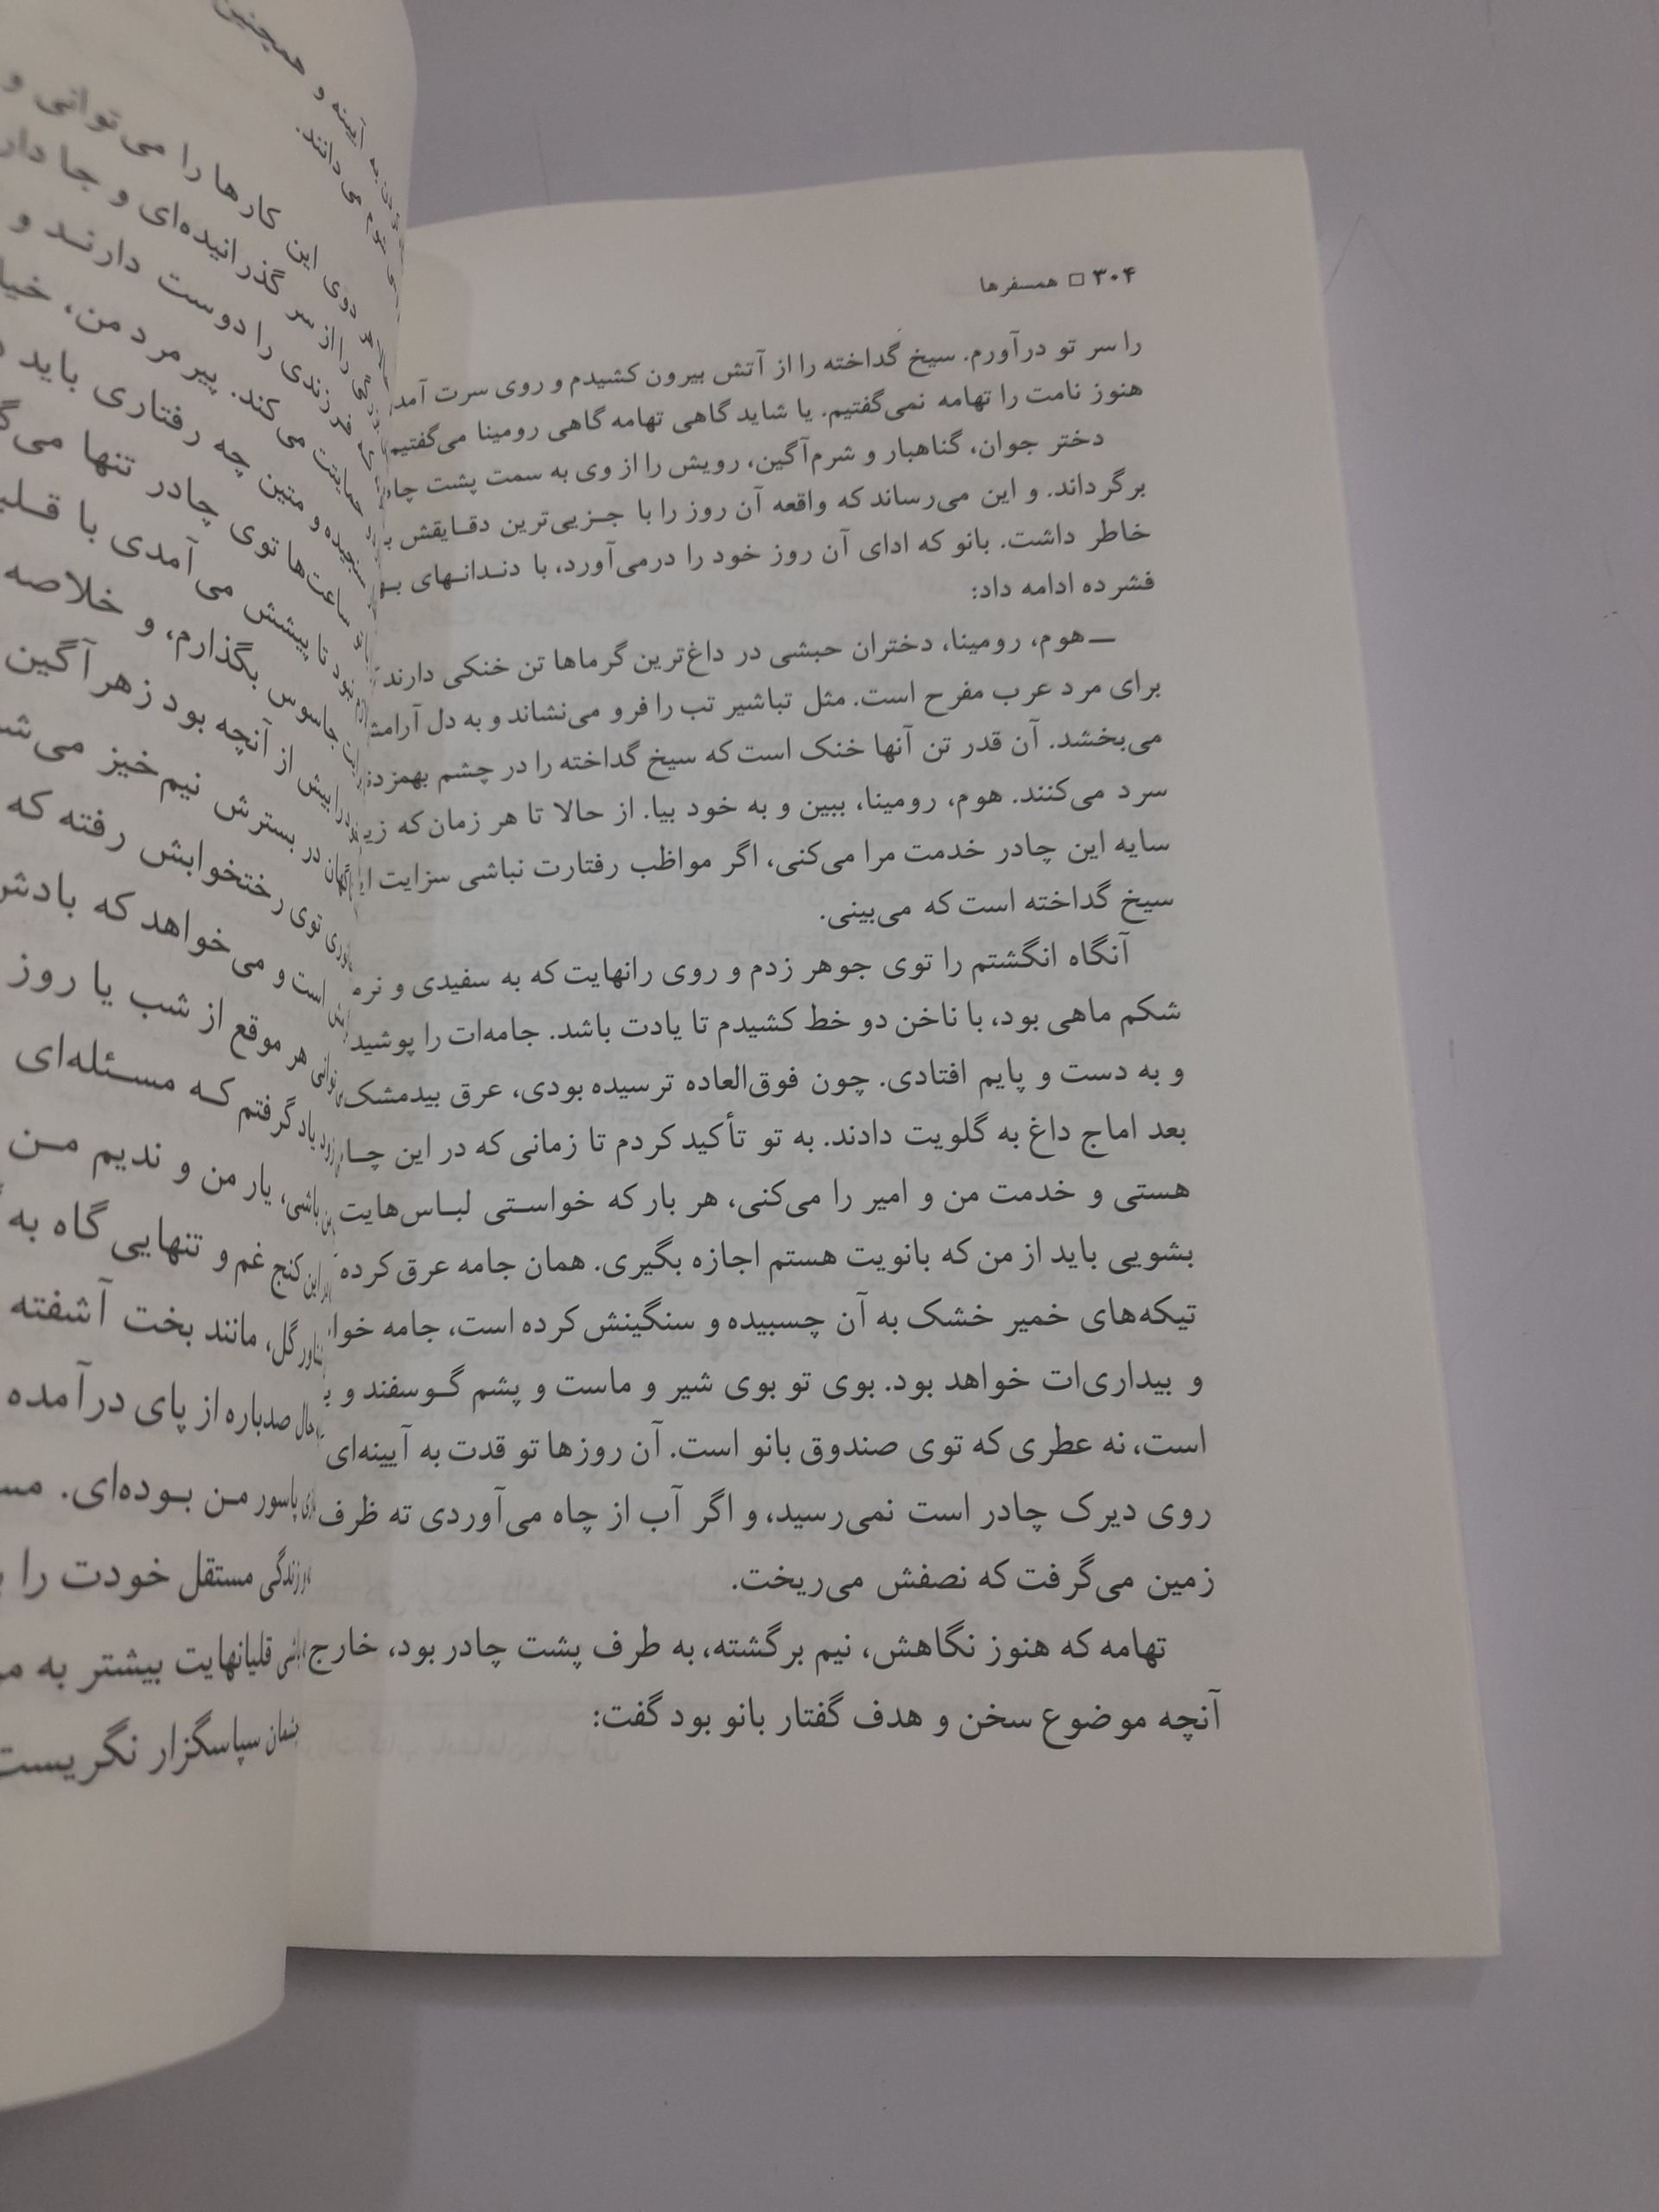 ۳۰۴ □ همسفرها
را سر تو درآورم. سیخ گداخته را از آتش بیرون کشیدم و روی سرت آمد
هنوز نامت را تهامه نمی‌گفتیم. یا شاید گاهی تهامه گاهی رومینا می‌گفتیم
دختر جوان، گناهبار و شرم‌آگین، رویش را از وی به سمت پشت
برگرداند. و این می‌رساند که واقعه آن روز را با جزیی‌ترین دقایقش
خاطر داشت. بانو که ادای آن روز خود را درمی‌آورد، با دندانهای
فشرده ادامه داد:
ـ هوم، رومینا، دختران حبشی در داغ‌ترین گرماها تن خنکی دارند
برای مرد عرب مفرح است. مثل تباشیر تب را فرو می‌نشاند و به دل
می‌بخشد. آن قدر تن آنها خنک است که سیخ گداخته را در چشم
سرد می‌کنند. هوم، رومینا، ببین و به خود بیا. از حالا تا هر زمان که
سایه این چادر خدمت مرا می‌کنی، اگر مواظب رفتارت نباشی سزایت
سیخ گداخته است که می‌بینی.
آنگاه انگشتم را توی جوهر زدم و روی رانهایت که به سفیدی و
شکم ماهی بود، با ناخن دو خط کشیدم تا یادت باشد. جامه‌ات را
و به دست و پایم افتادی. چون فوق‌العاده ترسیده بودی، عرق بیدمشک
بعد اماج داغ به گلویت دادند. به تو تأکید کردم تا زمانی که در این
هستی و خدمت من و امیر را می‌کنی، هر بار که خواستی لباس‌هایت
بشویی باید از من که بانویت هستم اجازه بگیری. همان جامه عرق کرده
تیکه‌های خمیر خشک به آن چسبیده و سنگینش کرده است، جامه
و بیداری‌ات خواهد بود. بوی تو بوی شیر و ماست و پشم گوسفند و
است، نه عطری که توی صندوق بانو است. آن روزها تو قدت به آیینه‌ای
روی دیرک چادر است نمی‌رسید، و اگر آب از چاه می‌آوردی ته ظرف
زمین می‌گرفت که نصفش می‌ریخت.
تهامه که هنوز نگاهش، نیم برگشته، به طرف پشت چادر بود، خارج
آنچه موضوع سخن و هدف گفتار بانو بود گفت:
آیینه و همچنین
می‌دانند.
دوی این کارها را می‌توانی و
را از سر گذرانیده‌ای و جا
فرزندی را دوست دارند و
حمایت می‌کند. پیرمرد من،
سنجیده و متین چه رفتاری باید
ساعت‌ها توی چادر تنها
نبود تا پیشش می‌آمدی با
جاسوس بگذارم، و خلاصه
را بیش از آنچه بود زهرآگین
در بسترش نیم‌خیز
توی رختخوابش رفته که
است و می‌خواهد که
هر موقع از شب یا روز
زود یاد گرفتم که مسئله‌ای
باشی، یار من و ندیم من
این کنج غم و تنهایی گاه به
گل، مانند بخت آشفته
حال صدباره از پای درآمده
پاسور من بوده‌ای.
زندگی مستقل خودت را
قلیانهایت بیشتر به
سپاسگزار نگریست